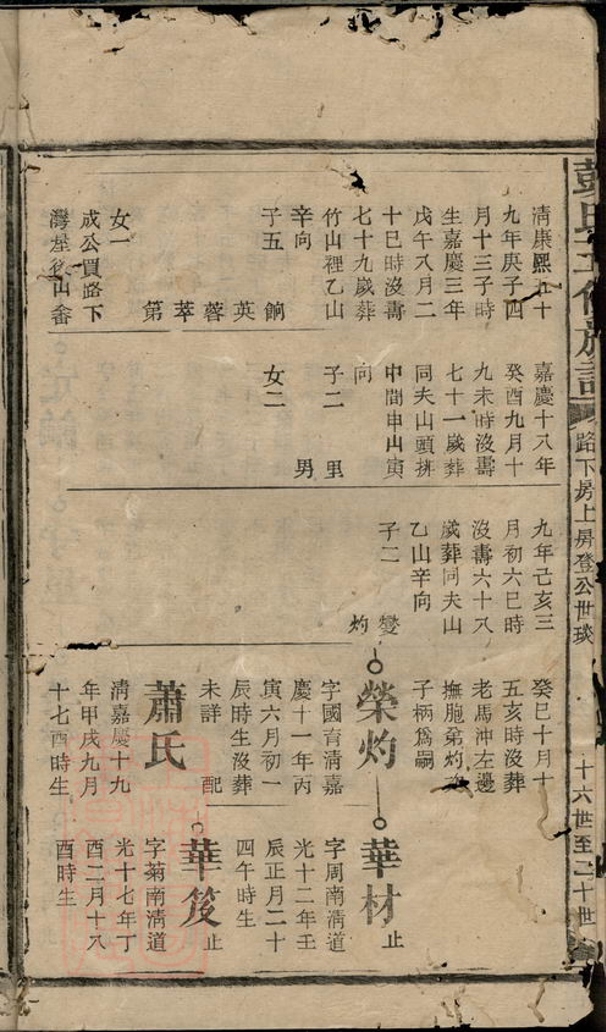 路下房上昇登公世琰
十六世至二十世
清康熙五十
九年庚子四
月十三子時
生嘉慶三年
戊午八月二
十巳時沒壽
七十九歲葬
竹山裡乙山
辛向
子五 餉
英
蓉
萃
第
女一
成公買路下
嘉慶十八年
癸酉九月十
九未時沒壽
七十一歲葬
同夫山頭排
中間申山寅
向
子二 里
男
女二
九年己亥三
月初六巳時
沒壽六十八
歲葬同夫山
乙山辛向
子二 燮
灼
癸巳十月十
五亥時沒葬
老馬冲左邊
撫胞弟灼
子柄爲嗣
榮灼
字國育清嘉
慶十一年丙
寅六月初一
辰時生沒葬
未詳 配
蕭氏
清嘉慶十九
年甲戌九月
十七酉時生
華材 止
字周南清道
光十二年壬
辰正月二十
四午時生
華笈 止
字菊南清道
光十七年丁
酉二月十八
酉時生